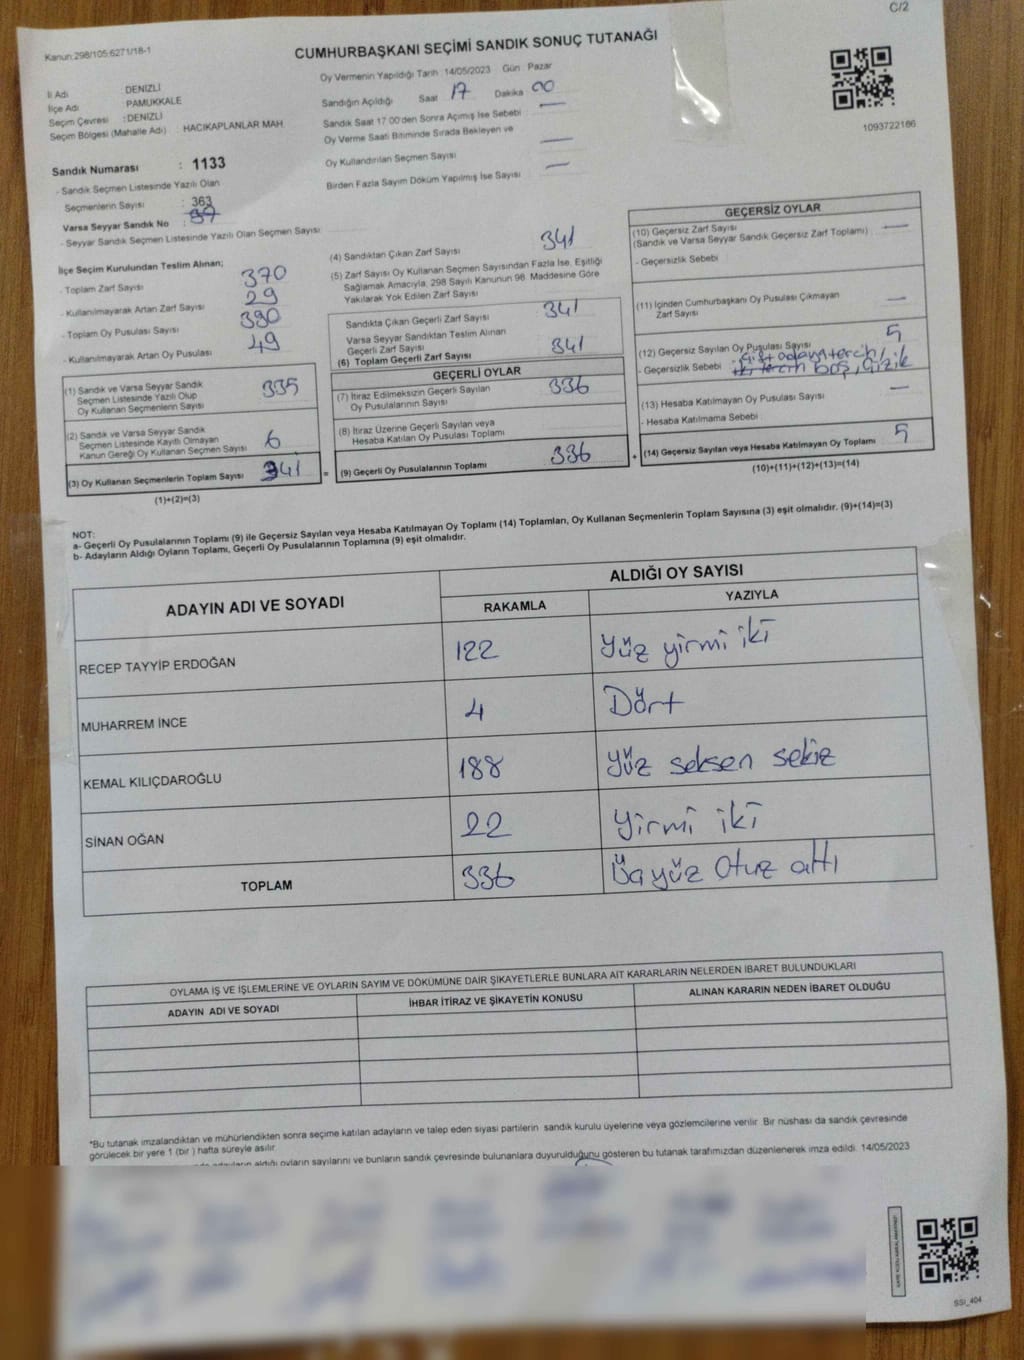 C/2
Kanun:298/105:6271/18-1
CUMHURBAŞKANI SEÇİMİ SANDIK SONUÇ TUTANAĞI
İl Adı DENİZLİ
İlçe Adı PAMUKKALE
Seçim Çevresi : DENİZLİ
Seçim Bölgesi (Mahalle Adı) : HACIKAPLANLAR MAH.
Oy Vermenin Yapıldığı Tarih 14/05/2023 Gün Pazar
Sandığın Açıldığı Saat 17 Dakika 00
Sandık Saat 17:00'den Sonra Açılmış İse Sebebi —
Oy Verme Saati Bitiminde Sırada Bekleyen ve
Oy Kullandırılan Seçmen Sayısı —
Birden Fazla Sayım Döküm Yapılmış İse Sayısı —
1093722166
Sandık Numarası : 1133
- Sandık Seçmen Listesinde Yazılı Olan
Seçmenlerin Sayısı : 363
Varsa Seyyar Sandık No :
- Seyyar Sandık Seçmen Listesinde Yazılı Olan Seçmen Sayısı:
İlçe Seçim Kurulundan Teslim Alınan;
- Toplam Zarf Sayısı 370
- Kullanılmayarak Artan Zarf Sayısı 29
- Toplam Oy Pusulası Sayısı 390
- Kullanılmayarak Artan Oy Pusulası 49
(1) Sandık ve Varsa Seyyar Sandık
Seçmen Listesinde Yazılı Olup
Oy Kullanan Seçmenlerin Sayısı 335
(2) Sandık ve Varsa Seyyar Sandık
Seçmen Listesinde Kayıtlı Olmayan
Kanun Gereği Oy Kullanan Seçmen Sayısı 6
(3) Oy Kullanan Seçmenlerin Toplam Sayısı 341 =
(1)+(2)=(3)
(4) Sandıktan Çıkan Zarf Sayısı 341
(5) Zarf Sayısı Oy Kullanan Seçmen Sayısından Fazla İse, Eşitliği
Sağlamak Amacıyla, 298 Sayılı Kanunun 98. Maddesine Göre
Yakılarak Yok Edilen Zarf Sayısı
Sandıkta Çıkan Geçerli Zarf Sayısı 341
Varsa Seyyar Sandıktan Teslim Alınan
Geçerli Zarf Sayısı
(6) Toplam Geçerli Zarf Sayısı 341
GEÇERLİ OYLAR
(7) İtiraz Edilmeksizin Geçerli Sayılan
Oy Pusulalarının Sayısı 336
(8) İtiraz Üzerine Geçerli Sayılan veya
Hesaba Katılan Oy Pusulası Toplamı
(9) Geçerli Oy Pusulalarının Toplamı 336 +
GEÇERSİZ OYLAR
(10) Geçersiz Zarf Sayısı —
(Sandık ve Varsa Seyyar Sandık Geçersiz Zarf Toplamı)
- Geçersizlik Sebebi
(11) İçinden Cumhurbaşkanı Oy Pusulası Çıkmayan
Zarf Sayısı —
(12) Geçersiz Sayılan Oy Pusulası Sayısı 5
- Geçersizlik Sebebi tercih, boş, çizik
(13) Hesaba Katılmayan Oy Pusulası Sayısı —
- Hesaba Katılmama Sebebi
(14) Geçersiz Sayılan veya Hesaba Katılmayan Oy Toplamı 5
(10)+(11)+(12)+(13)=(14)
NOT:
a- Geçerli Oy Pusulalarının Toplamı (9) ile Geçersiz Sayılan veya Hesaba Katılmayan Oy Toplamı (14) Toplamları, Oy Kullanan Seçmenlerin Toplam Sayısına (3) eşit olmalıdır. (9)+(14)=(3)
b- Adayların Aldığı Oyların Toplamı, Geçerli Oy Pusulalarının Toplamına (9) eşit olmalıdır.
ADAYIN ADI VE SOYADI ALDIĞI OY SAYISI
RAKAMLA YAZIYLA
RECEP TAYYİP ERDOĞAN 122 Yüz yirmi iki
MUHARREM İNCE 4 Dört
KEMAL KILIÇDAROĞLU 188 Yüz seksen sekiz
SİNAN OĞAN 22 Yirmi iki
TOPLAM 336 Üçyüz Otuz altı
OYLAMA İŞ VE İŞLEMLERİNE VE OYLARIN SAYIM VE DÖKÜMÜNE DAİR ŞİKAYETLERLE BUNLARA AİT KARARLARIN NELERDEN İBARET BULUNDUKLARI
ADAYIN ADI VE SOYADI İHBAR İTİRAZ VE ŞİKAYETİN KONUSU ALINAN KARARIN NEDEN İBARET OLDUĞU
*Bu tutanak imzalandıktan ve mühürlendikten sonra seçime katılan adayların ve talep eden siyasi partilerin sandık kurulu üyelerine veya gözlemcilerine verilir. Bir nüshası da sandık çevresinde
görülecek bir yere 1 (bir) hafta süreyle asılır.
adayların aldığı oyların sayılarını ve bunların sandık çevresinde bulunanlara duyurulduğunu gösteren bu tutanak tarafımızdan düzenlenerek imza edildi. 14/05/2023
SSI_404